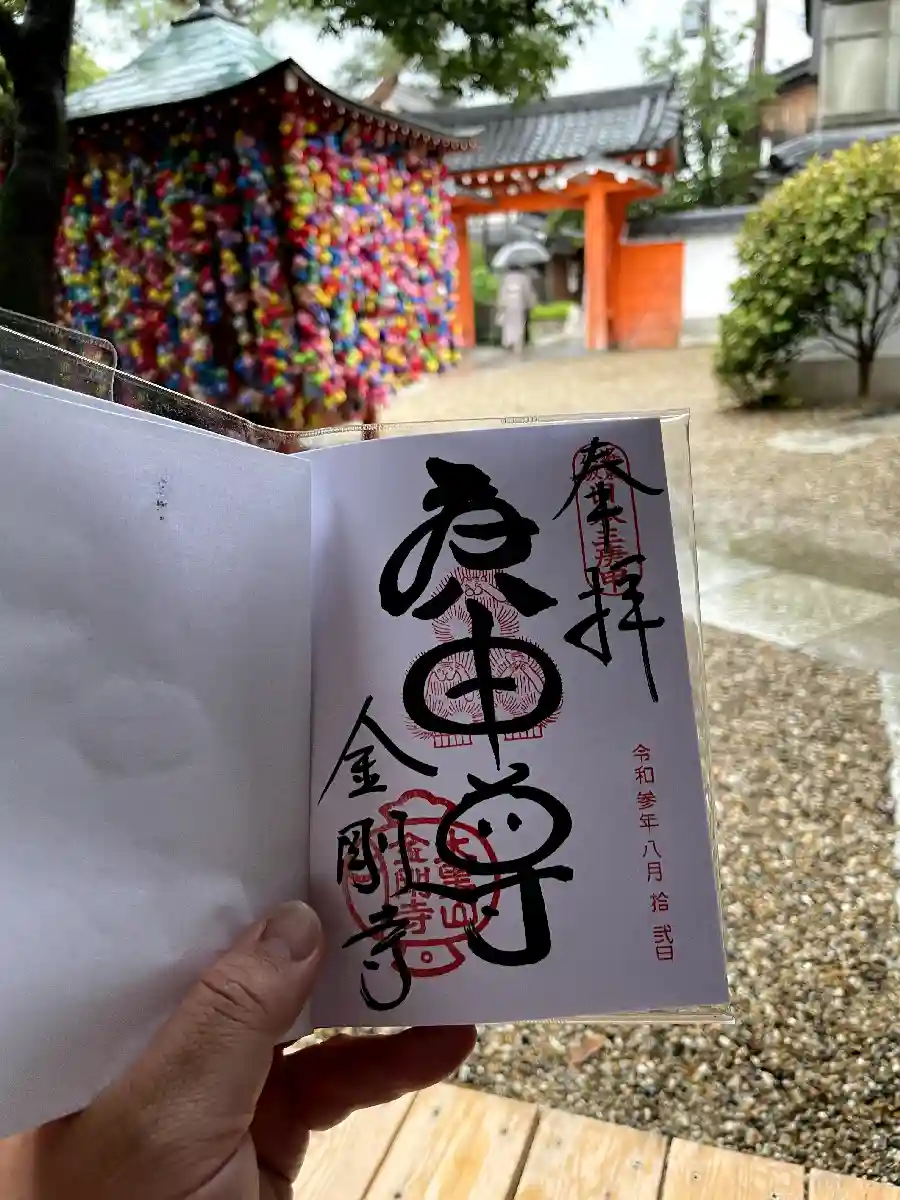 奉拝
日本三庚申
令和参年八月拾弐日
庚申尊
金剛寺
大黒山
金剛寺